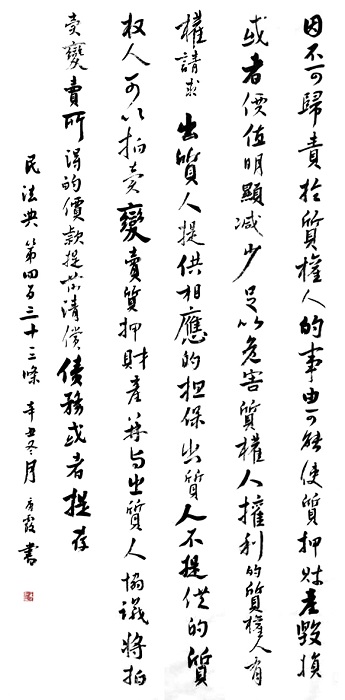 因不可歸責於質權人的事由可能使質押財產毀損
或者價值明顯減少足以危害質權人權利的質權人有
權請求出質人提供相應的担保出質人不提供的質
权人可以拍卖變賣質押財產並与出質人協議將拍
卖變賣所得的價款提前清償債務或者提存
民法典第四百三十三條 辛丑冬月 秀霞書